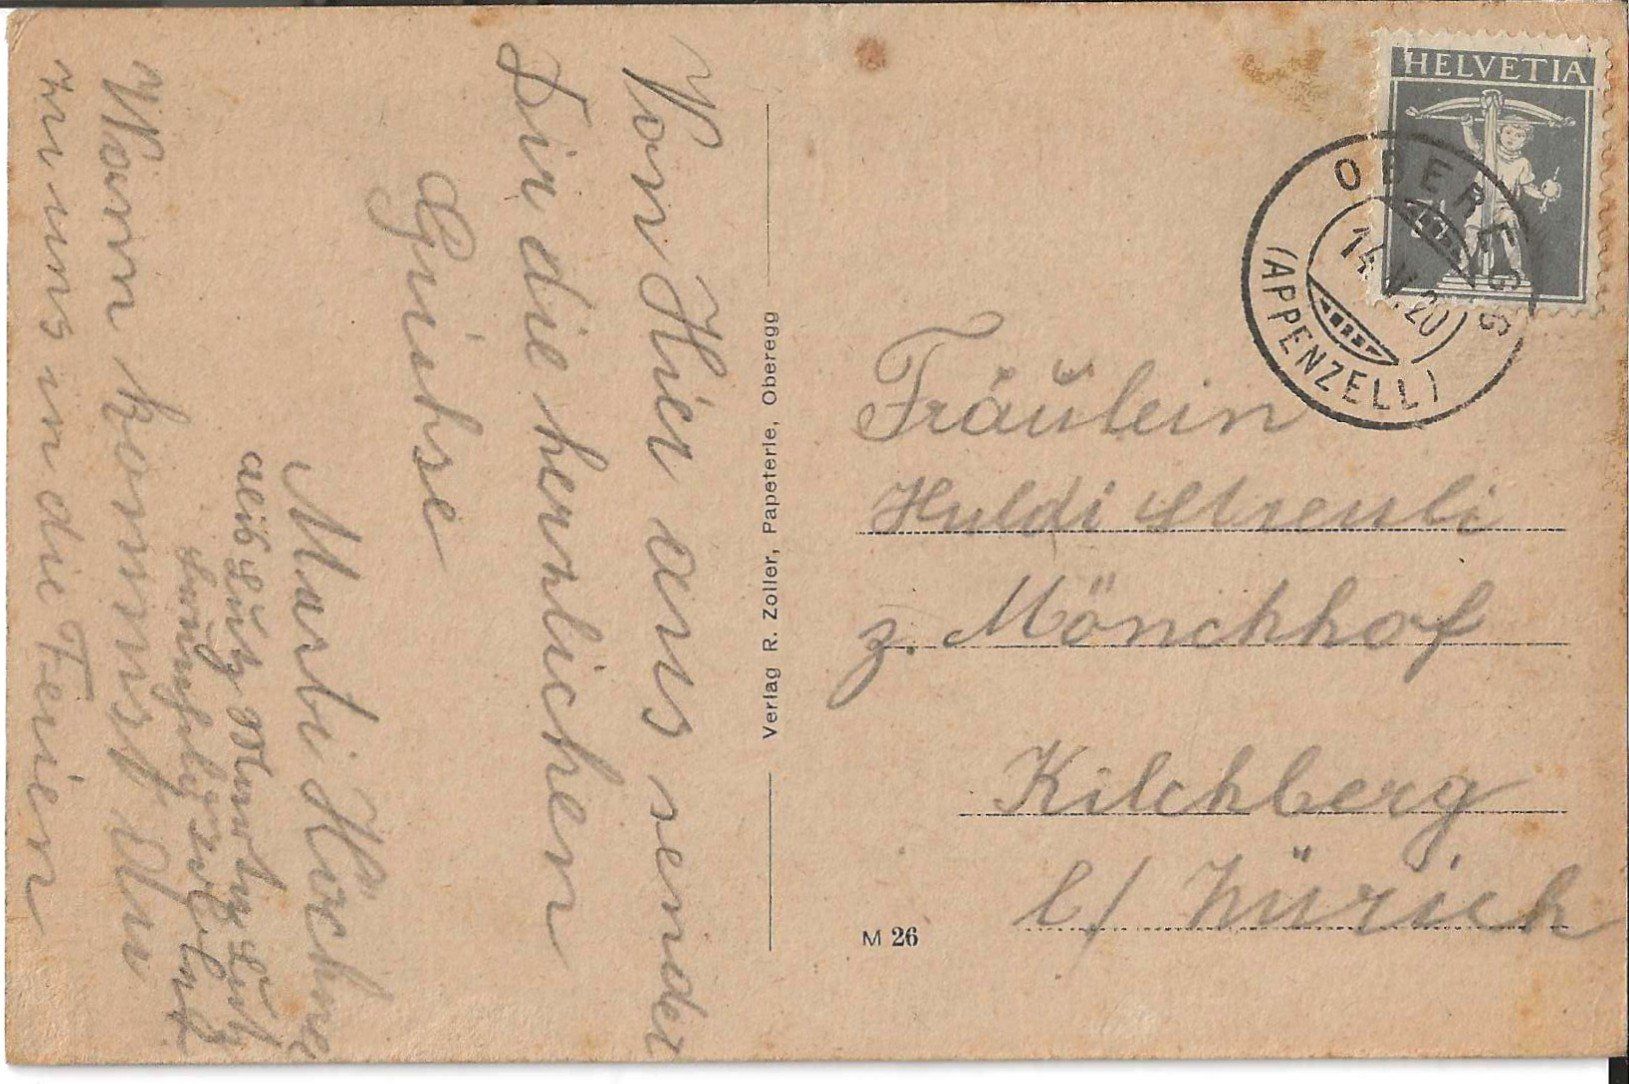 Von Hier aus sendet
Dir die herzlichen
Grüsse
Marti
Wann kommst Du
zu uns in die Ferien
Verlag R. Zoller, Papeterie, Oberegg
HELVETIA
OBEREGG
(APPENZELL)
Fräulein
Huldi Streuli
z. Mönchhof
Kilchberg
b/ Zürich
M 26